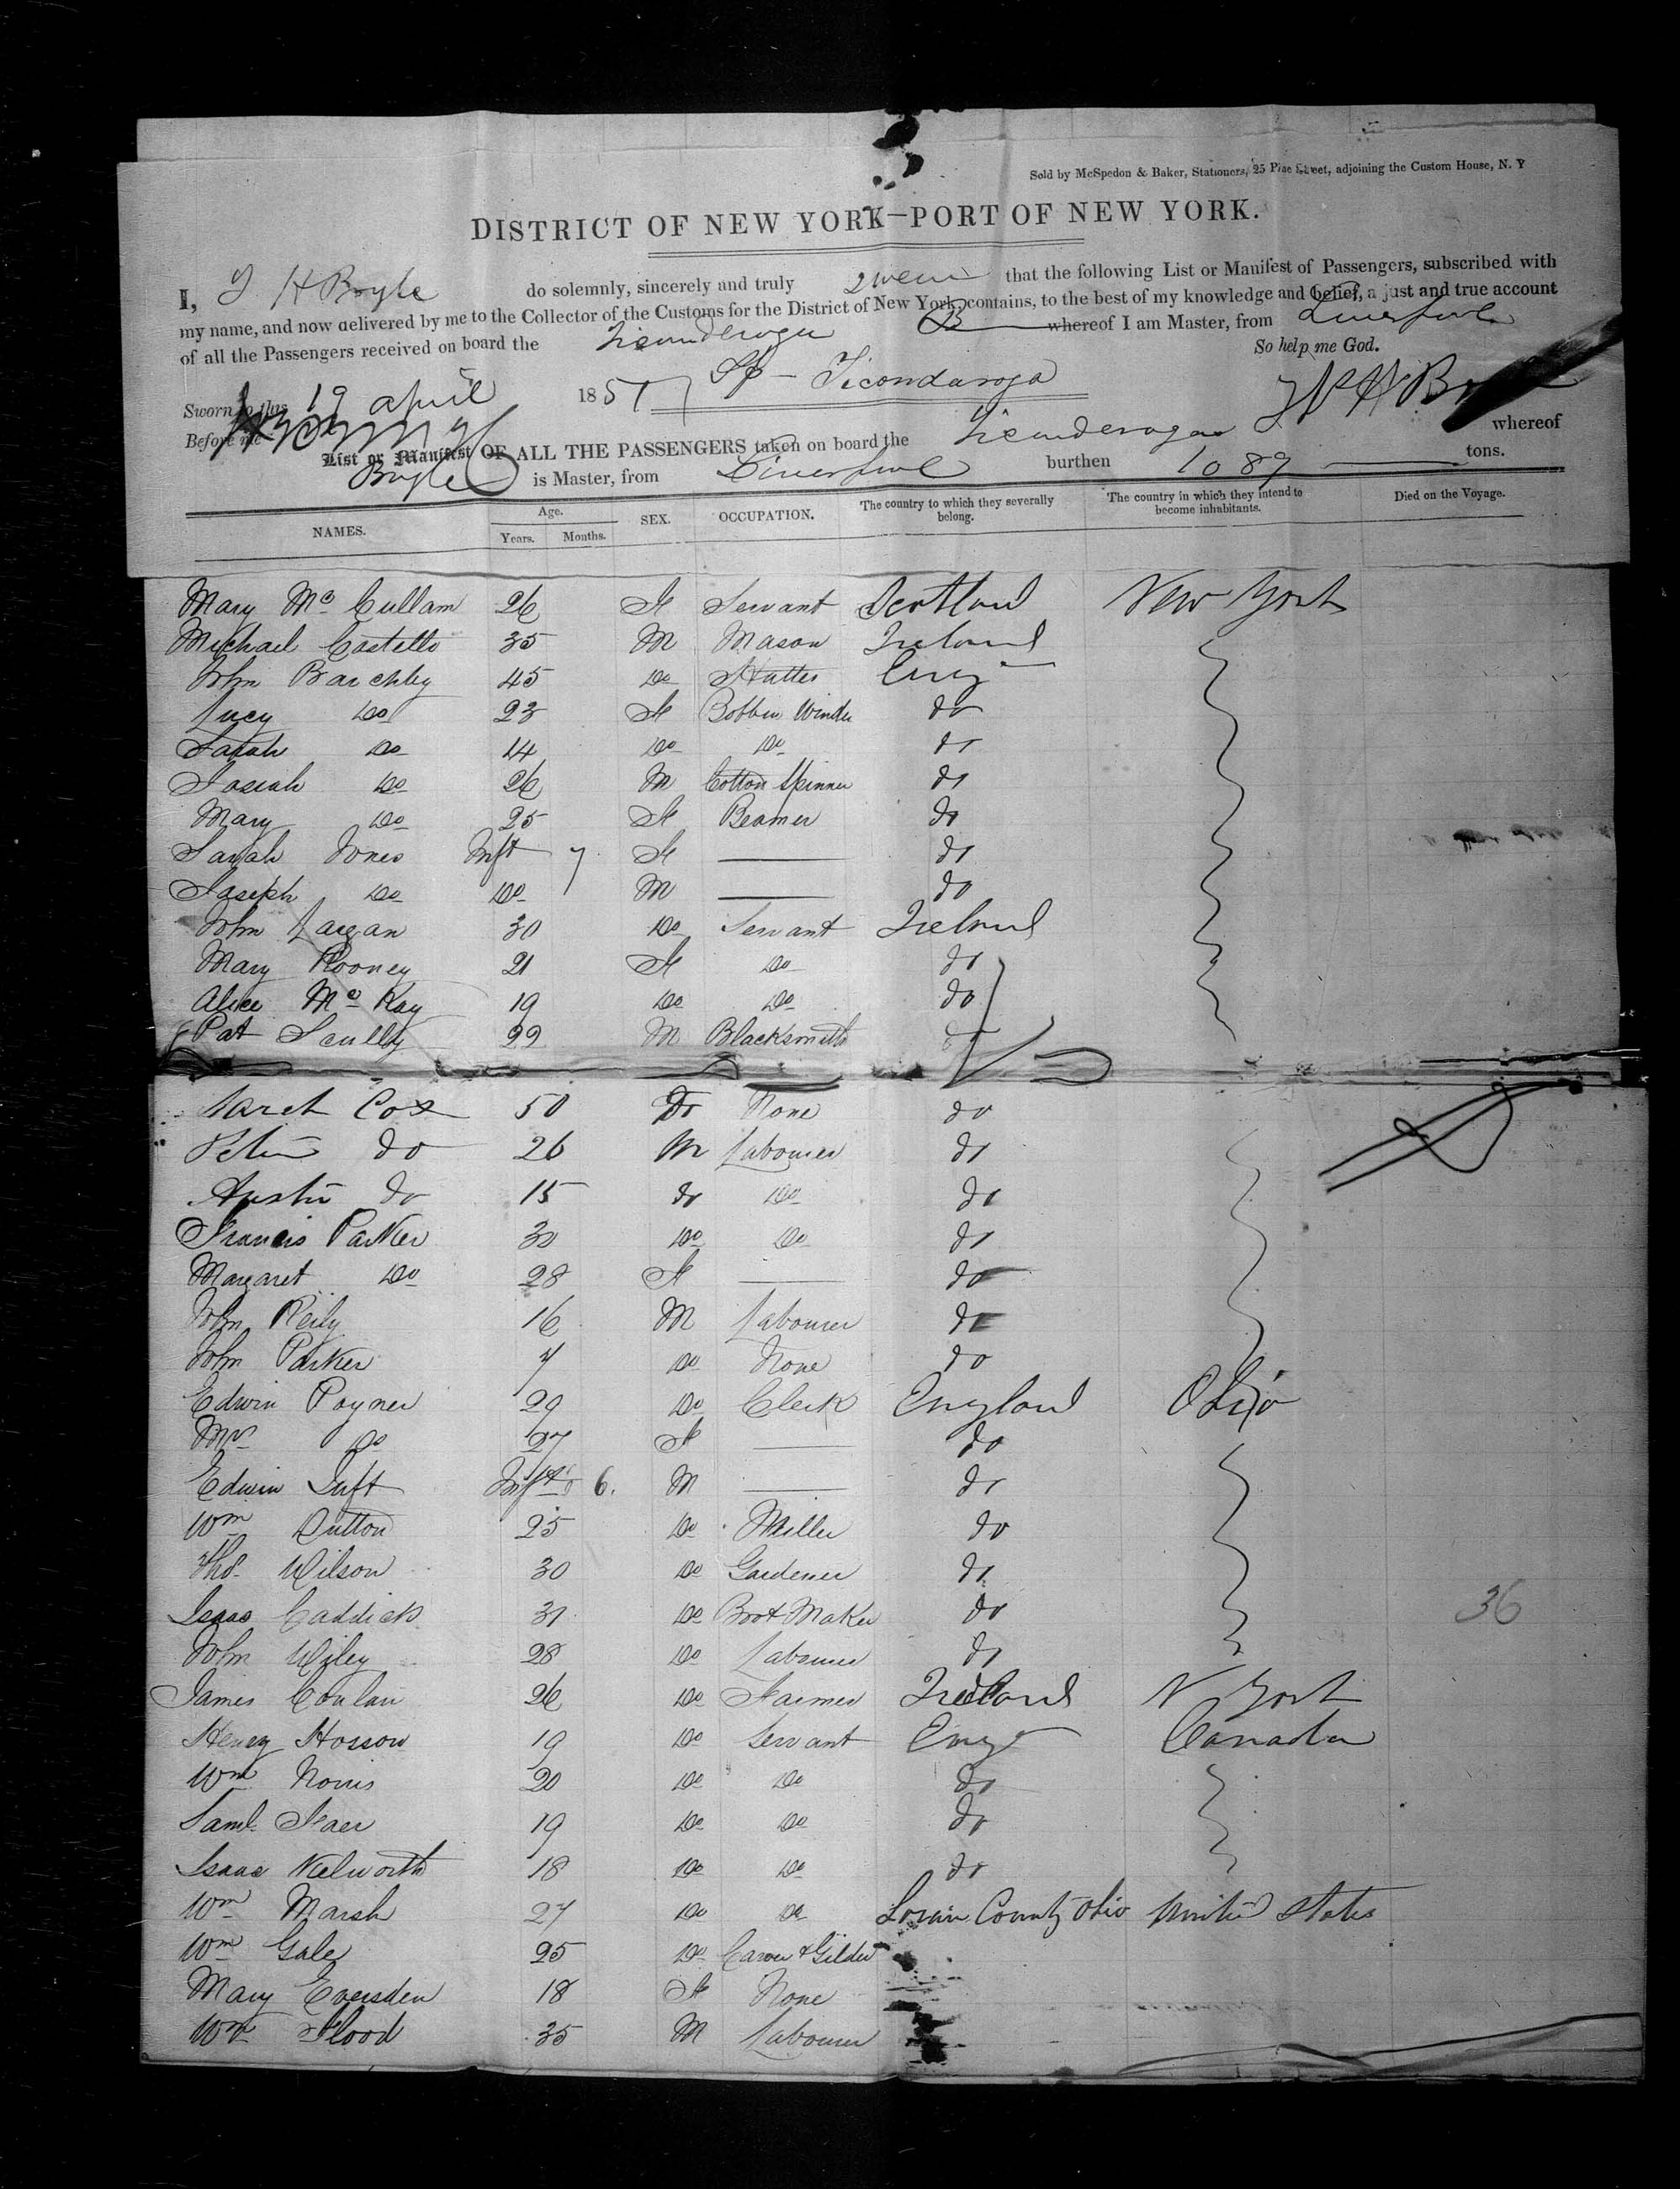 Sold by McSpedon & Baker, Stationers, 25 Pine Street, adjoining the Custom House, N. Y
DISTRICT OF NEW YORK—PORT OF NEW YORK.
I, H Boyle do solemnly, sincerely and truly swear that the following List or Manifest of Passengers, subscribed with
my name, and now delivered by me to the Collector of the Customs for the District of New York, contains, to the best of my knowledge and belief, a just and true account
of all the Passengers received on board the Ticonderoga whereof I am Master, from Liverpool
So help me God.
Sworn to this 19 april 1851 Sp - Ticonderoga
Before me
List or Manifest OF ALL THE PASSENGERS taken on board the Ticonderoga whereof
Boyle is Master, from Liverpool burthen 1089 tons.
NAMES. Age. Years. Months. SEX. OCCUPATION. The country to which they severally belong. The country in which they intend to become inhabitants. Died on the Voyage.
Mary Mc Cullam 26 F Servant Scotland New York
Michael Costello 35 M Mason Ireland
John Barchley 45 Do Hatter Eng
Lucy Do 23 F Bobbin Winder do
Sarah Do 14 Do Do do
Josiah Do 26 M Cotton Spinner do
Mary Do 25 F Beamer do
Sarah Jones Inft 7 F do
Joseph Do Do M do
John Largan 30 Do Servant Ireland
Mary Rooney 21 F Do do
Alice Mc Kay 19 Do Do do
Pat Scully 22 M Blacksmith do
Sarah Cox 50 Do None do
Peter do 26 M Labourer do
Austin do 15 do Do do
Francis Parker 30 Do Do do
Margaret Do 28 F do
John Reily 16 M Labourer do
John Parker 7 Do None do
Edwin Poyner 29 Do Clerk England Ohio
Mrs Do 27 F do
Edwin Tuft Inft 6. M do
Wm Dutton 25 Do Miller do
Thos. Wilson 30 Do Gardener do
Isaac Caddick 31 Do Boot Maker do 36
John Wiley 28 Do Labourer do
James Conlan 26 Do Farmer Ireland N York
Henry Hosson 19 Do Servant Eng Canada
Wm Norris 20 Do Do do
Saml. Faer 19 Do Do do
Isaac Kelworth 18 Do Do do
Wm Marsh 27 Do Do Lorain County Ohio United States
Wm Gale 25 Do Carver & Gilder
Mary Eversden 18 F None
Wm Flood 35 M Labourer